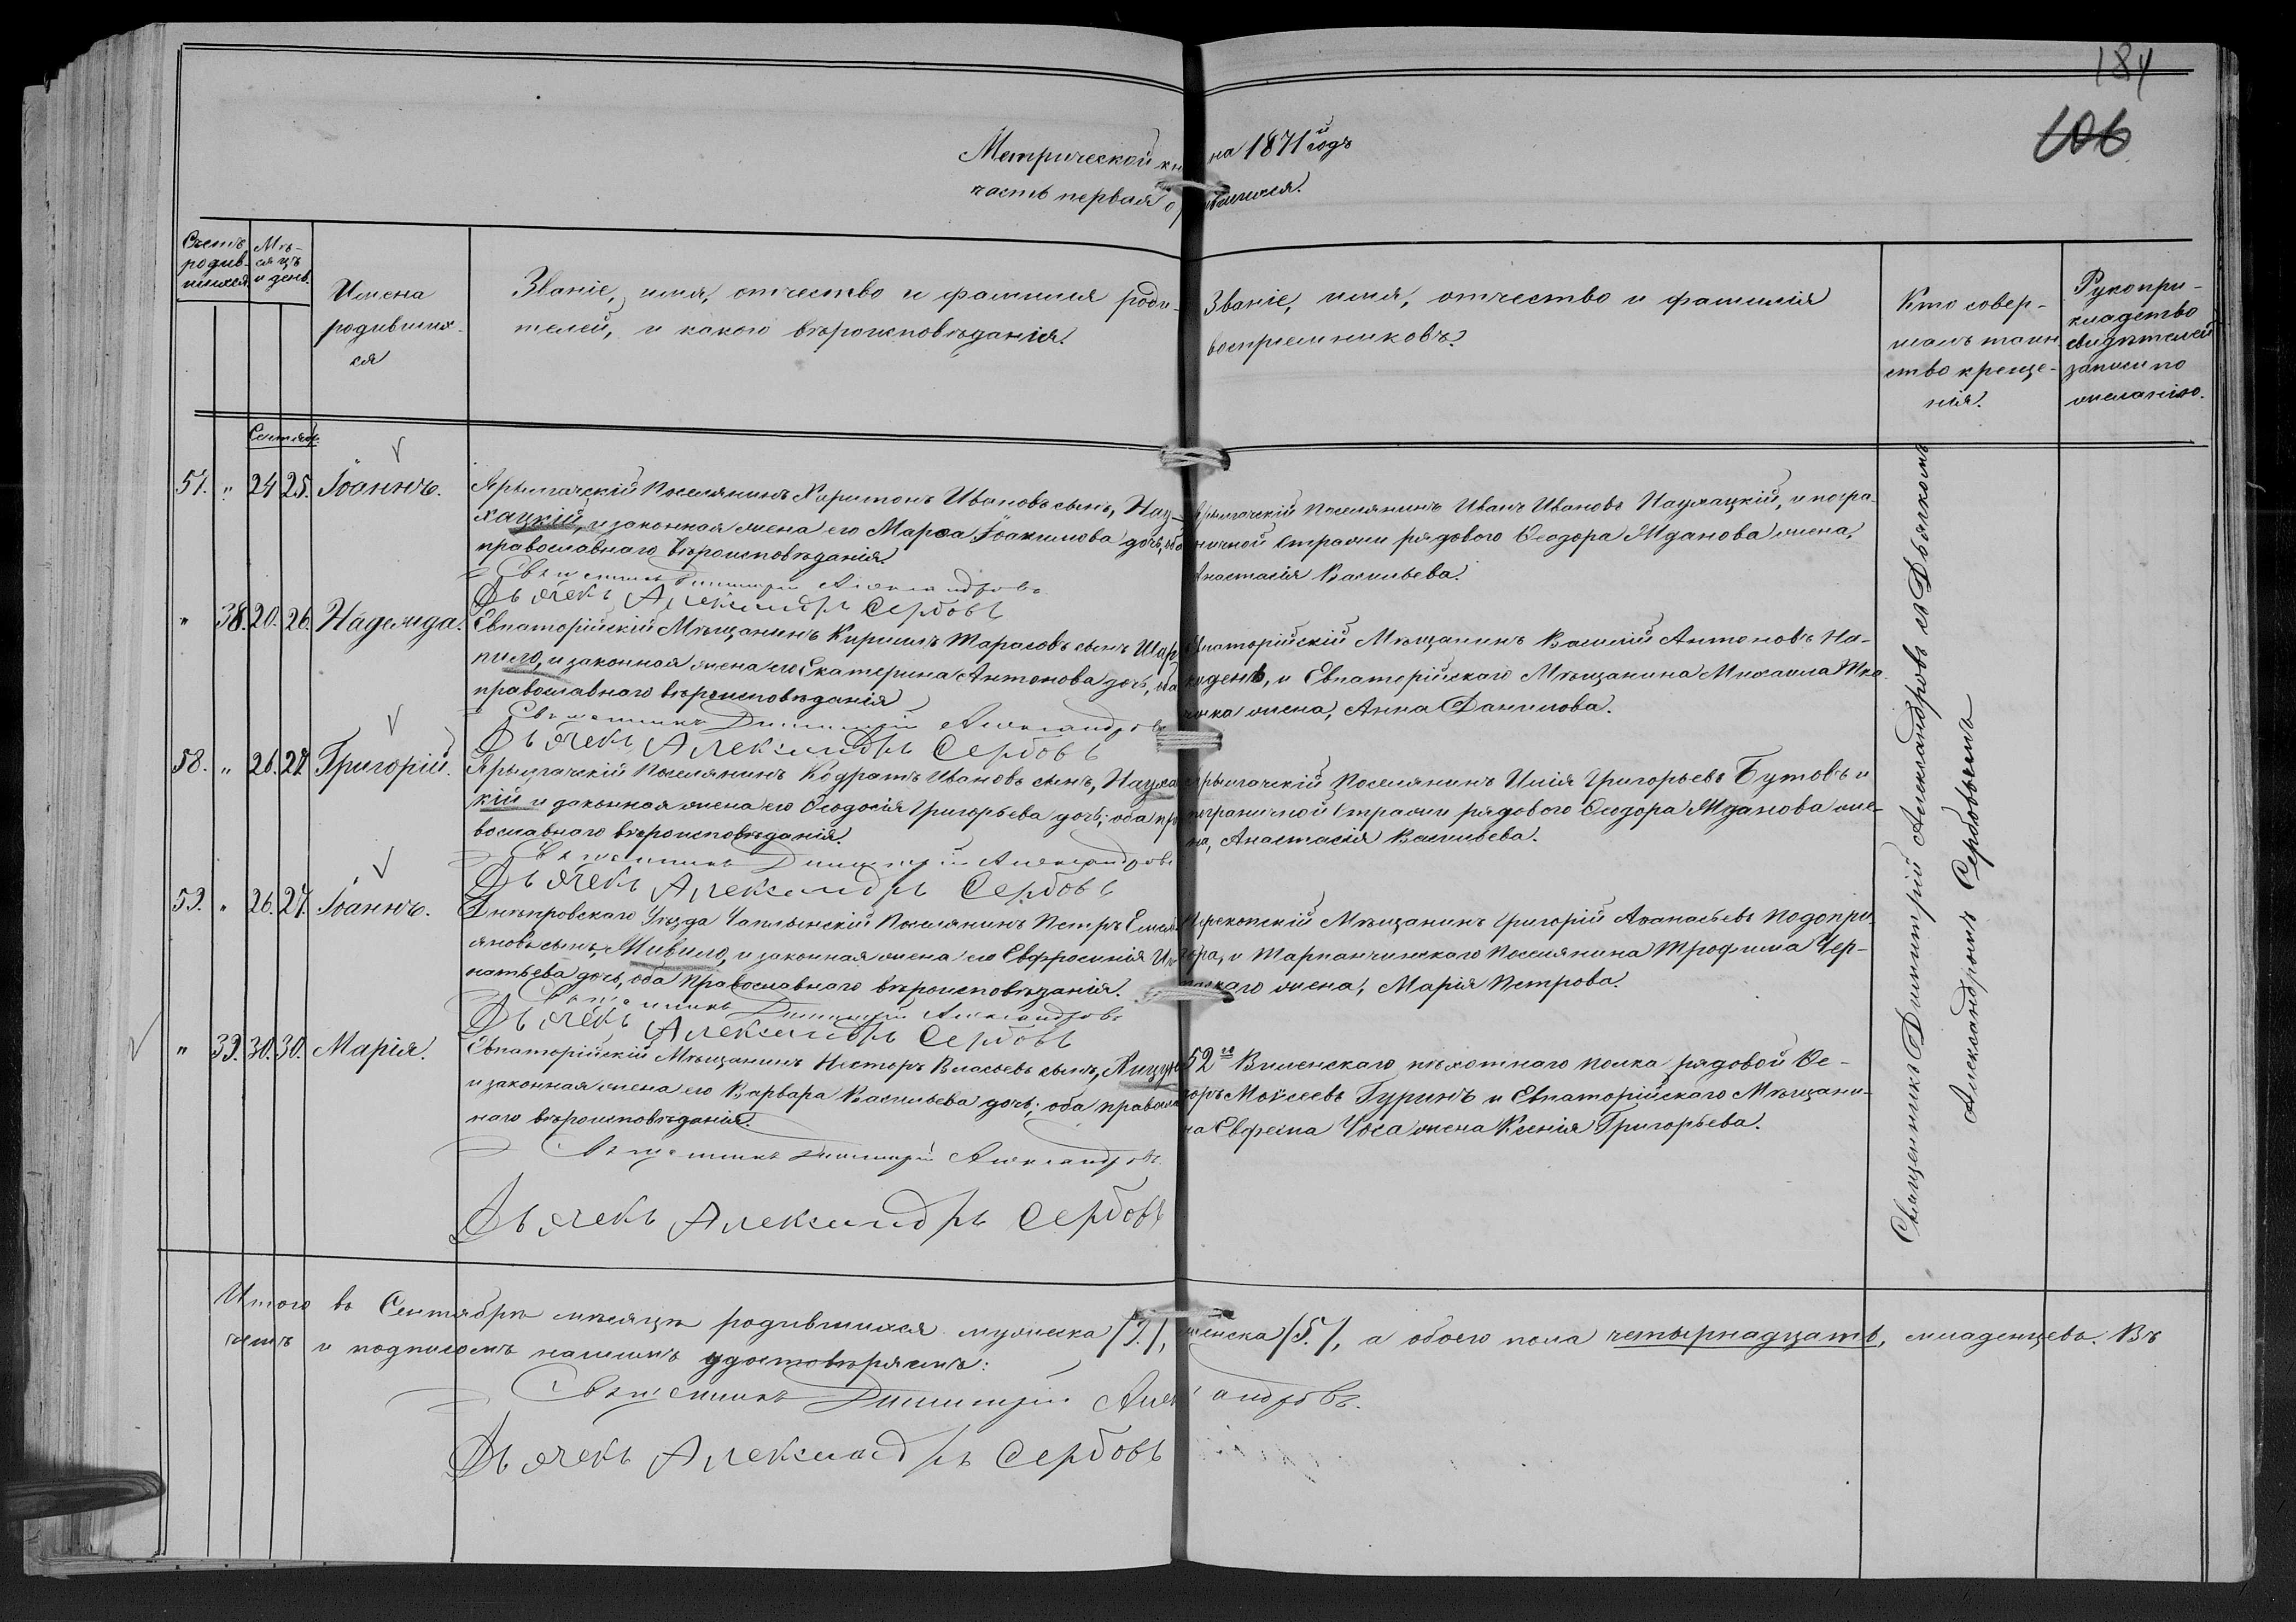 184
106
Метрической кн на 1871й годъ
часть первая о
Счетъ родив-шихся
Мѣ-сяцъ и день.
Имена родивших-ся
Званіе, имя, отчество и фамилія роди-
телей, и какого вѣроисповѣданія.
Званіе, имя, отчество и фамилія
воспріемниковъ.
Кто совер-
шалъ таин-
ство креще-
нія.
Рукопри-
кладство
свидѣтелей
записи по
желанію.
Сентябр.
57. " 24 25. Іоаннъ.
Ярылгачскій Поселянинъ Харитонъ Ивановъ сынъ, Нау-
хацкій, и законная жена его Марѳа Іоакимова дочь, оба
православнаго вѣроисповѣданія.
Священникъ Димитрій Александровъ
Дьячекъ Александръ Сербовъ
Ярылгачскій Поселянинъ Иванъ Ивановъ Наухацкій, и погра-
ничной стражи рядового Ѳеодора Жданова жена,
Анастасія Васильева.
" 38. 20. 26. Надежда.
Евпаторійскій Мѣщанинъ Кириллъ Тарасовъ сынъ Шар
пило, и законная жена его Екатерина Антонова дочь, оба
православнаго вѣроисповѣданія
Священникъ Димитрій Александровъ
Дьячекъ Александръ Сербовъ
Евпаторійскій Мѣщанинъ Василій Антоновъ На-
кидень, и Евпаторійскаго Мѣщанина Михаила Тка-
чика жена, Анна Данилова.
58. " 26. 27. Григорій.
Ярылгачскій Поселянинъ Кодратъ Ивановъ сынъ, Наухац
кій и законная жена его Ѳеодосія Григорьева дочь; оба пра
вославнаго вѣроисповѣданія.
Священникъ Димитрій Александровъ
Дьячекъ Александръ Сербовъ
Ярылгачскій Поселянинъ Илія Григорьевъ Бутовъ и
пограничной стражи рядового Ѳеодора Жданова же-
на, Анастасія Васильева.
59. " 26. 27. Іоаннъ.
Днѣпровскаго Уѣзда Чаплынскій Поселянинъ Петръ Емель
яновъ сынъ, Живило, и законная жена его Евфросинія Иг
натьева дочь, оба Православнаго вѣроисповѣданія.
Священникъ Димитрій Александровъ
Дьячекъ Александръ Сербовъ
Перекопскій Мѣщанинъ Григорій Аѳанасьевъ Подопри-
гора, и Тарпанчинскаго Поселянина Трофима Чер-
жена, Марія Петрова.
" 39. 30. 30. Марія.
Евпаторійскій Мѣщанинъ Несторъ Власьевъ сынъ,
и законная жена его Варвара Васильева дочь; оба правосла
внаго вѣроисповѣданія.
Священникъ Димитрій Александровъ
Дьячекъ Александръ Сербовъ
52го Виленскаго пѣхотнаго полка рядовой Ѳе-
доръ Моисеевъ Гуринъ и Евпаторійскаго Мѣщани-
на Евфима Чоса жена Ксенія Григорьева.
Священникъ Димитрій Александровъ съ Дьячкомъ
Александромъ Сербовымъ
Итого въ Сентябрѣ мѣсяцѣ родившихся мужеска /9./, женска /5./, а обоего пола четырнадцать, младенцевъ. Въ
чемъ и подписомъ нашимъ удостовѣряемъ:
Священникъ Димитрій Александровъ.
Дьячекъ Александръ Сербовъ